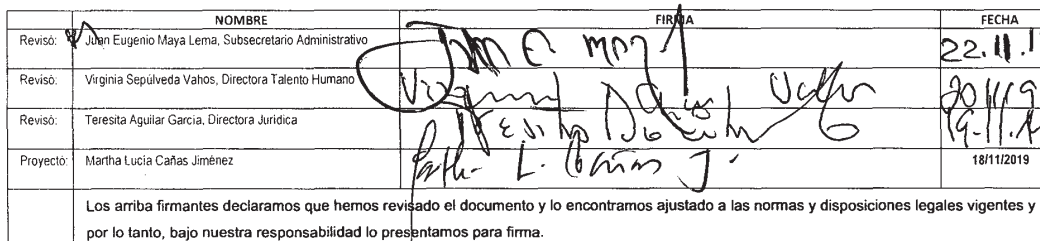 NOMBRE FIRMA FECHA
Revisó: Juan Eugenio Maya Lema, Subsecretario Administrativo 22.11.1
Revisó: Virginia Sepúlveda Vahos, Directora Talento Humano Virginia
Revisó: Teresita Aguilar García, Directora Jurídica 19.11.
Proyectó: Martha Lucía Cañas Jiménez Martha L. Cañas J. 18/11/2019
Los arriba firmantes declaramos que hemos revisado el documento y lo encontramos ajustado a las normas y disposiciones legales vigentes y
por lo tanto, bajo nuestra responsabilidad lo presentamos para firma.